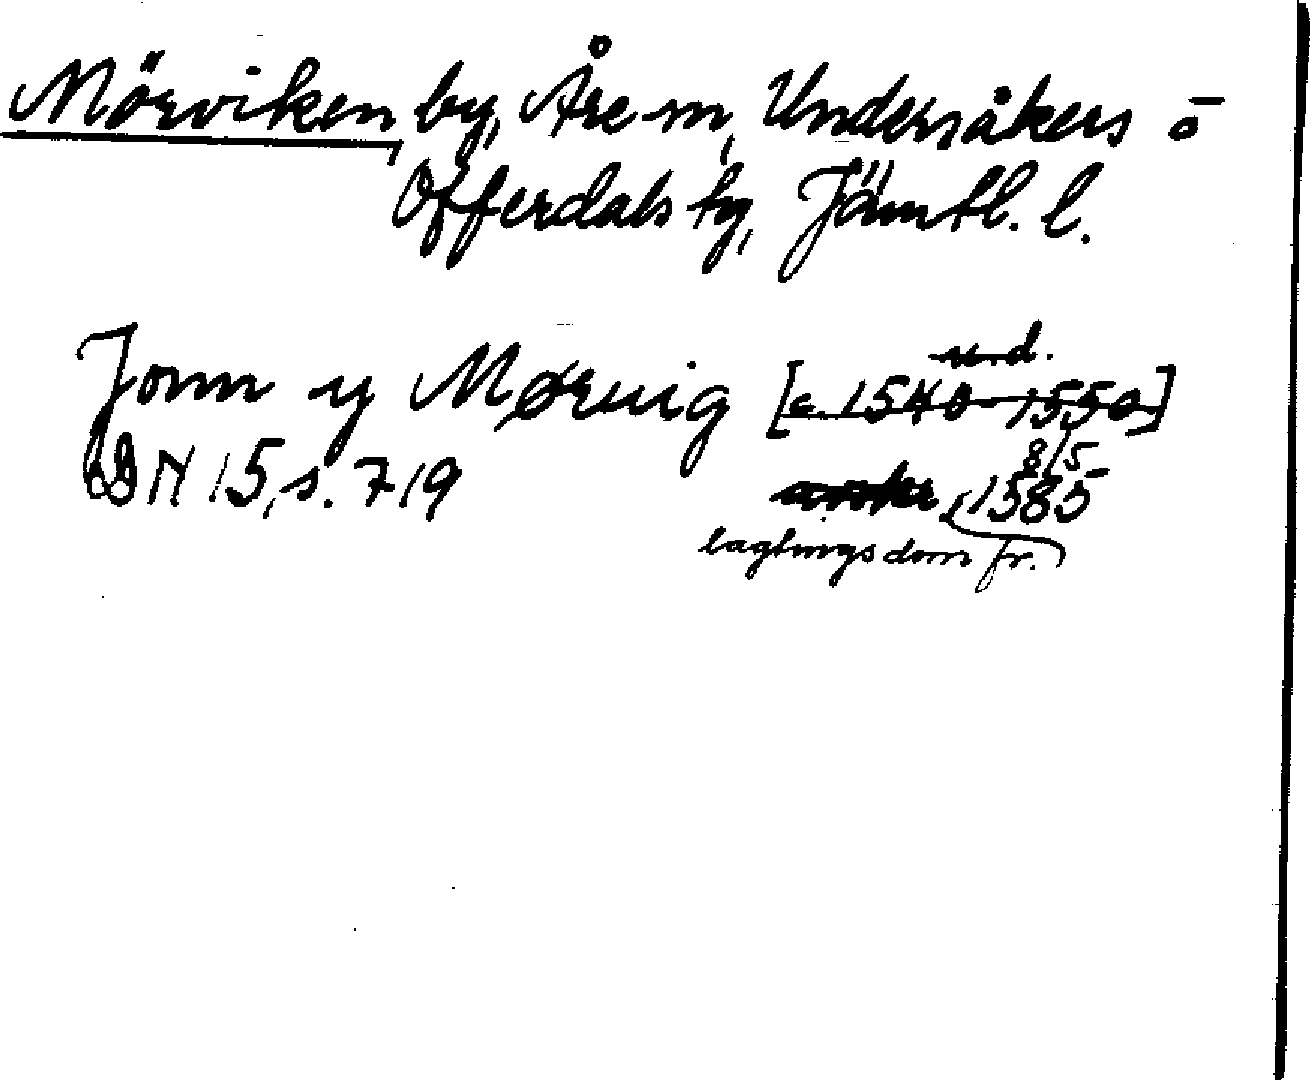 Mörviken, by, Åre sn, Undersåkers o
Offerdals tg, Jämtl. l.
Jonn y Møruig [c. 1540-1550] u.d.
DN 15, s. 719 8/5 1585
lagtingsdom fr.